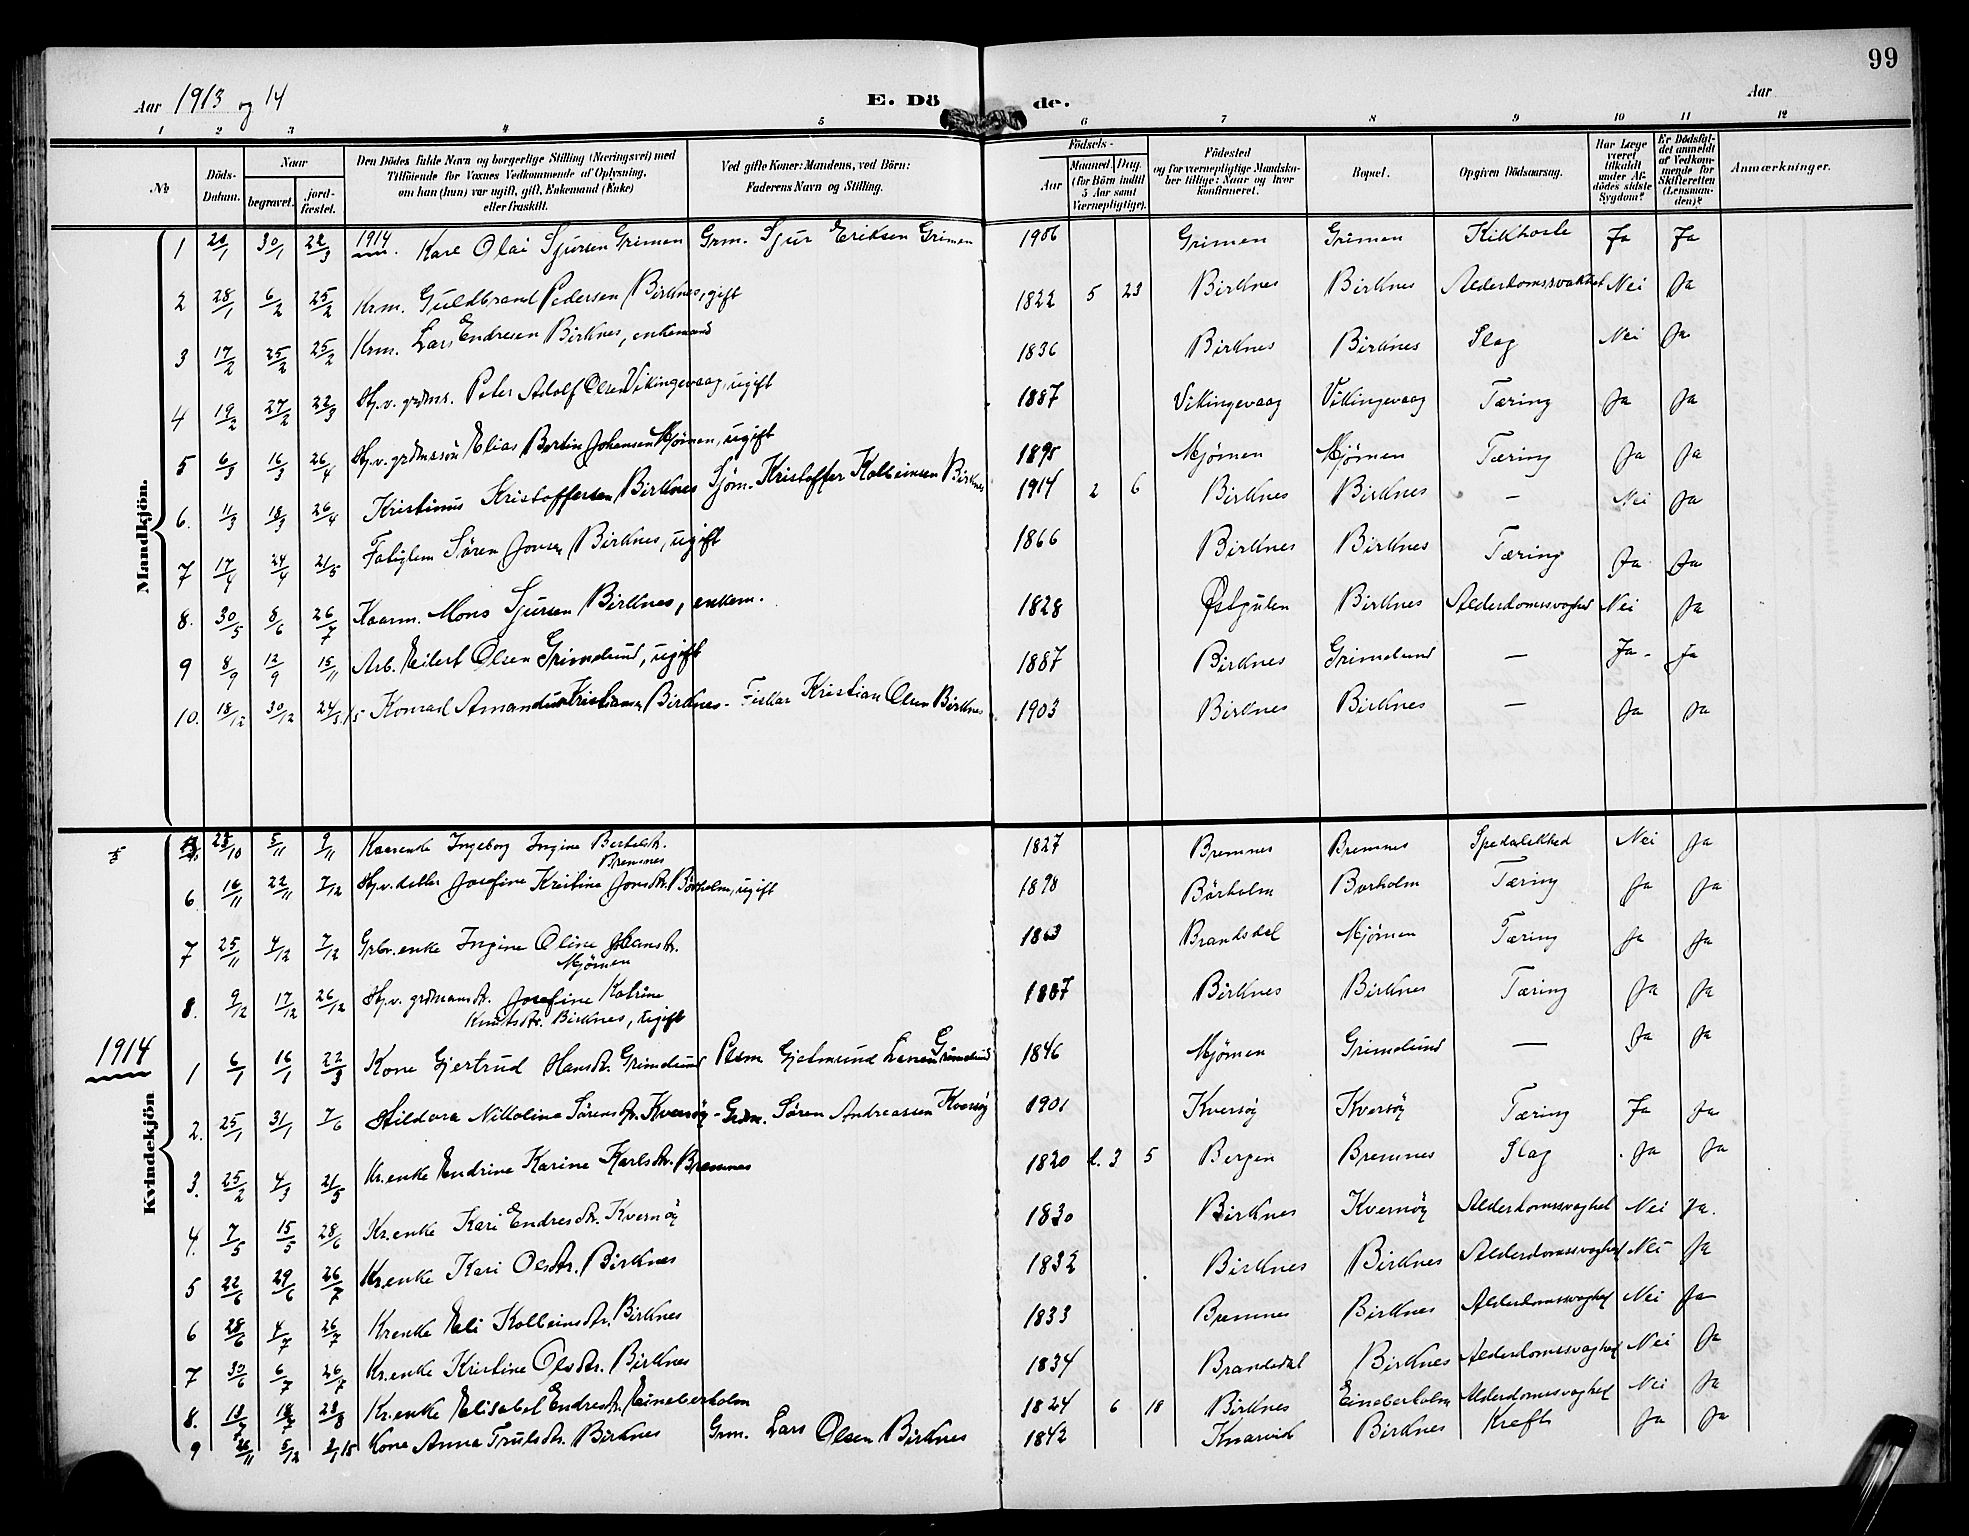 99
Aar 1913 og 14
E. Dö de.
Aar
1 2 3 4 5 6 7 8 9 10 11 12
No
Döds-Datum.
Naar
begravet.
jord-fæstet.
Den Dödes fulde Navn og borgerlige Stilling (Næringsvei) med
Tilföiende for Voxnes Vedkommende af Oplysning,
om han (hun) var ugift, gift, Enkemand (Enke)
eller fraskilt.
Ved gifte Koner: Mandens, ved Börn:
Faderens Navn og Stilling.
Födsels-
Aar
Maaned. Dag.
(for Börn indtil 5 Aar samt Værnepligtige).
Födested
og for værnepligtige Mandskaber tillige: Naar og hvor konfirmeret.
Bopæl.
Opgiven Dödsaarsag.
Har Læge været tilkaldt under Afdödes sidste Sygdom?
Er Dödsfaldet anmeldt af Vedkommende for Skifteretten (Lensmanden)?
Anmærkninger.
Mandkjön.
1914
1 30/1 22/3 Karl Olai Sjursen Grimen Grm. Sjur Eriksen Grimen 1906 Grimen Grimen Kikhoste Ja Ja
2 28/1 6/2 25/2 Krm. Guldbrand Pedersen Birknes, gift 1822 5 23 Birknes Birknes Alderdomssvakhet Nei Ja
3 17/2 25/2 25/2 Krm. Lars Endresen Birknes, enkemand 1836 Birknes Birknes Slag Nei Ja
4 19/2 27/2 22/3 Hj.v. grdms. Peter Adolf Olsen Vikingevaag, ugift 1887 Vikingevaag Vikingevaag Tæring Ja Ja
5 6/3 16/3 26/4 Hj.v. grdmssön Elias Bertin Johansen Mjömen, ugift 1895 Mjömen Mjömen Tæring Ja Ja
6. 11/3 18/3 26/4 Kristinus Kristoffersen Birknes Sjöm. Kristoffer Kolbeinsen Birknes 1914 2 6 Birknes Birknes — Nei Ja
7 17/4 24/4 21/5 Fatiglem Sören Jonsen Birknes, ugift 1866 Birknes Birknes Tæring Ja Ja
8. 30/5 8/6 26/7 Kaarm. Mons Sjursen Birknes, enkem. 1828 Östgulen Birknes Alderdomssvaghed Nei Ja
9 8/9 12/9 15/11 Arb. Eilert Olsen Grimelund, ugift 1887 Birknes Grimelund — Ja Ja
10. 18/12 30/12 Konrad Amandus Kristiansen Birknes - Fisker Kristian Olsen Birknes 1903 Birknes Birknes — Ja Ja
Kvindekjön
5/11 9/11 Kaarenke Ingeborg Ingine Bertelsdt.
Bremnes 1827 Bremnes Bremnes Spedalskhed Nei Ja
6. 16/11 22/11 7/12 Hj.v. datter Josefine Kristine Jonsdt. Börholm, ugift 1898 Börholm Borholm Tæring Ja Ja
7 25/11 4/12 7/12 Grbr.enke Ingine Oline Hansdt.
Mjömen 1863 Brandsdal Mjömen Tæring Ja Ja
8. 9/12 17/12 26/12 Hj.v. grdmansdt. Josefine Katrine
Knutsdt. Birknes, ugift 1887 Birknes Birknes Tæring Ja Ja
1914
1 6/1 16/1 22/3 Kone Gjertrud Hansdt. Grimelund Plsm Gjelmund Larsen Grimelund 1846 Mjömen Grimelund — Ja Ja
2. 25/1 31/1 7/6 Hildora Nikoline Sörensdt. Kversöy - Grdm. Sören Andreassen Kversöy 1901 Kversöy Kversöy Tæring Ja Ja
3. 25/2 4/3 21/5 Kr.enke Endrine Karine Karlsdt. Bremnes 1820 3 5 Bergen Bremnes Slag Ja Ja
4. 7/5 15/5 28/6 Kr.enke Kari Endresdt. Kvernöy 1830 Birknes Kvernöy Alderdomssvaghet Nei Ja.
5 22/6 29/6 26/7 Kr.enke Kari Olsdt. Birknes 1832 Birknes Birknes Alderdomssvaghed Nei Ja
6 28/6 4/7 26/7 Kr.enke Eli Kolbeinsdt. Birknes 1833 Bremnes Birknes Alderdomssvaghed Nei Ja
7 30/6 6/7 26/7 Kr.enke Kristine Olsdt. Birknes 1834 Brandsdal Birknes Alderdomssvaghed Nei Ja
8. 23/8 Kr.enke Elisabet Endresdt. Eineberholm 1824 6 18 Birknes Eineberholm Alderdomssvaghed Nei Ja
9 26/11 5/12 Kone Anna Trulsdt. Birknes Grm. Lars Olsen Birknes 1842 Knarvik Birknes Kreft Ja Ja